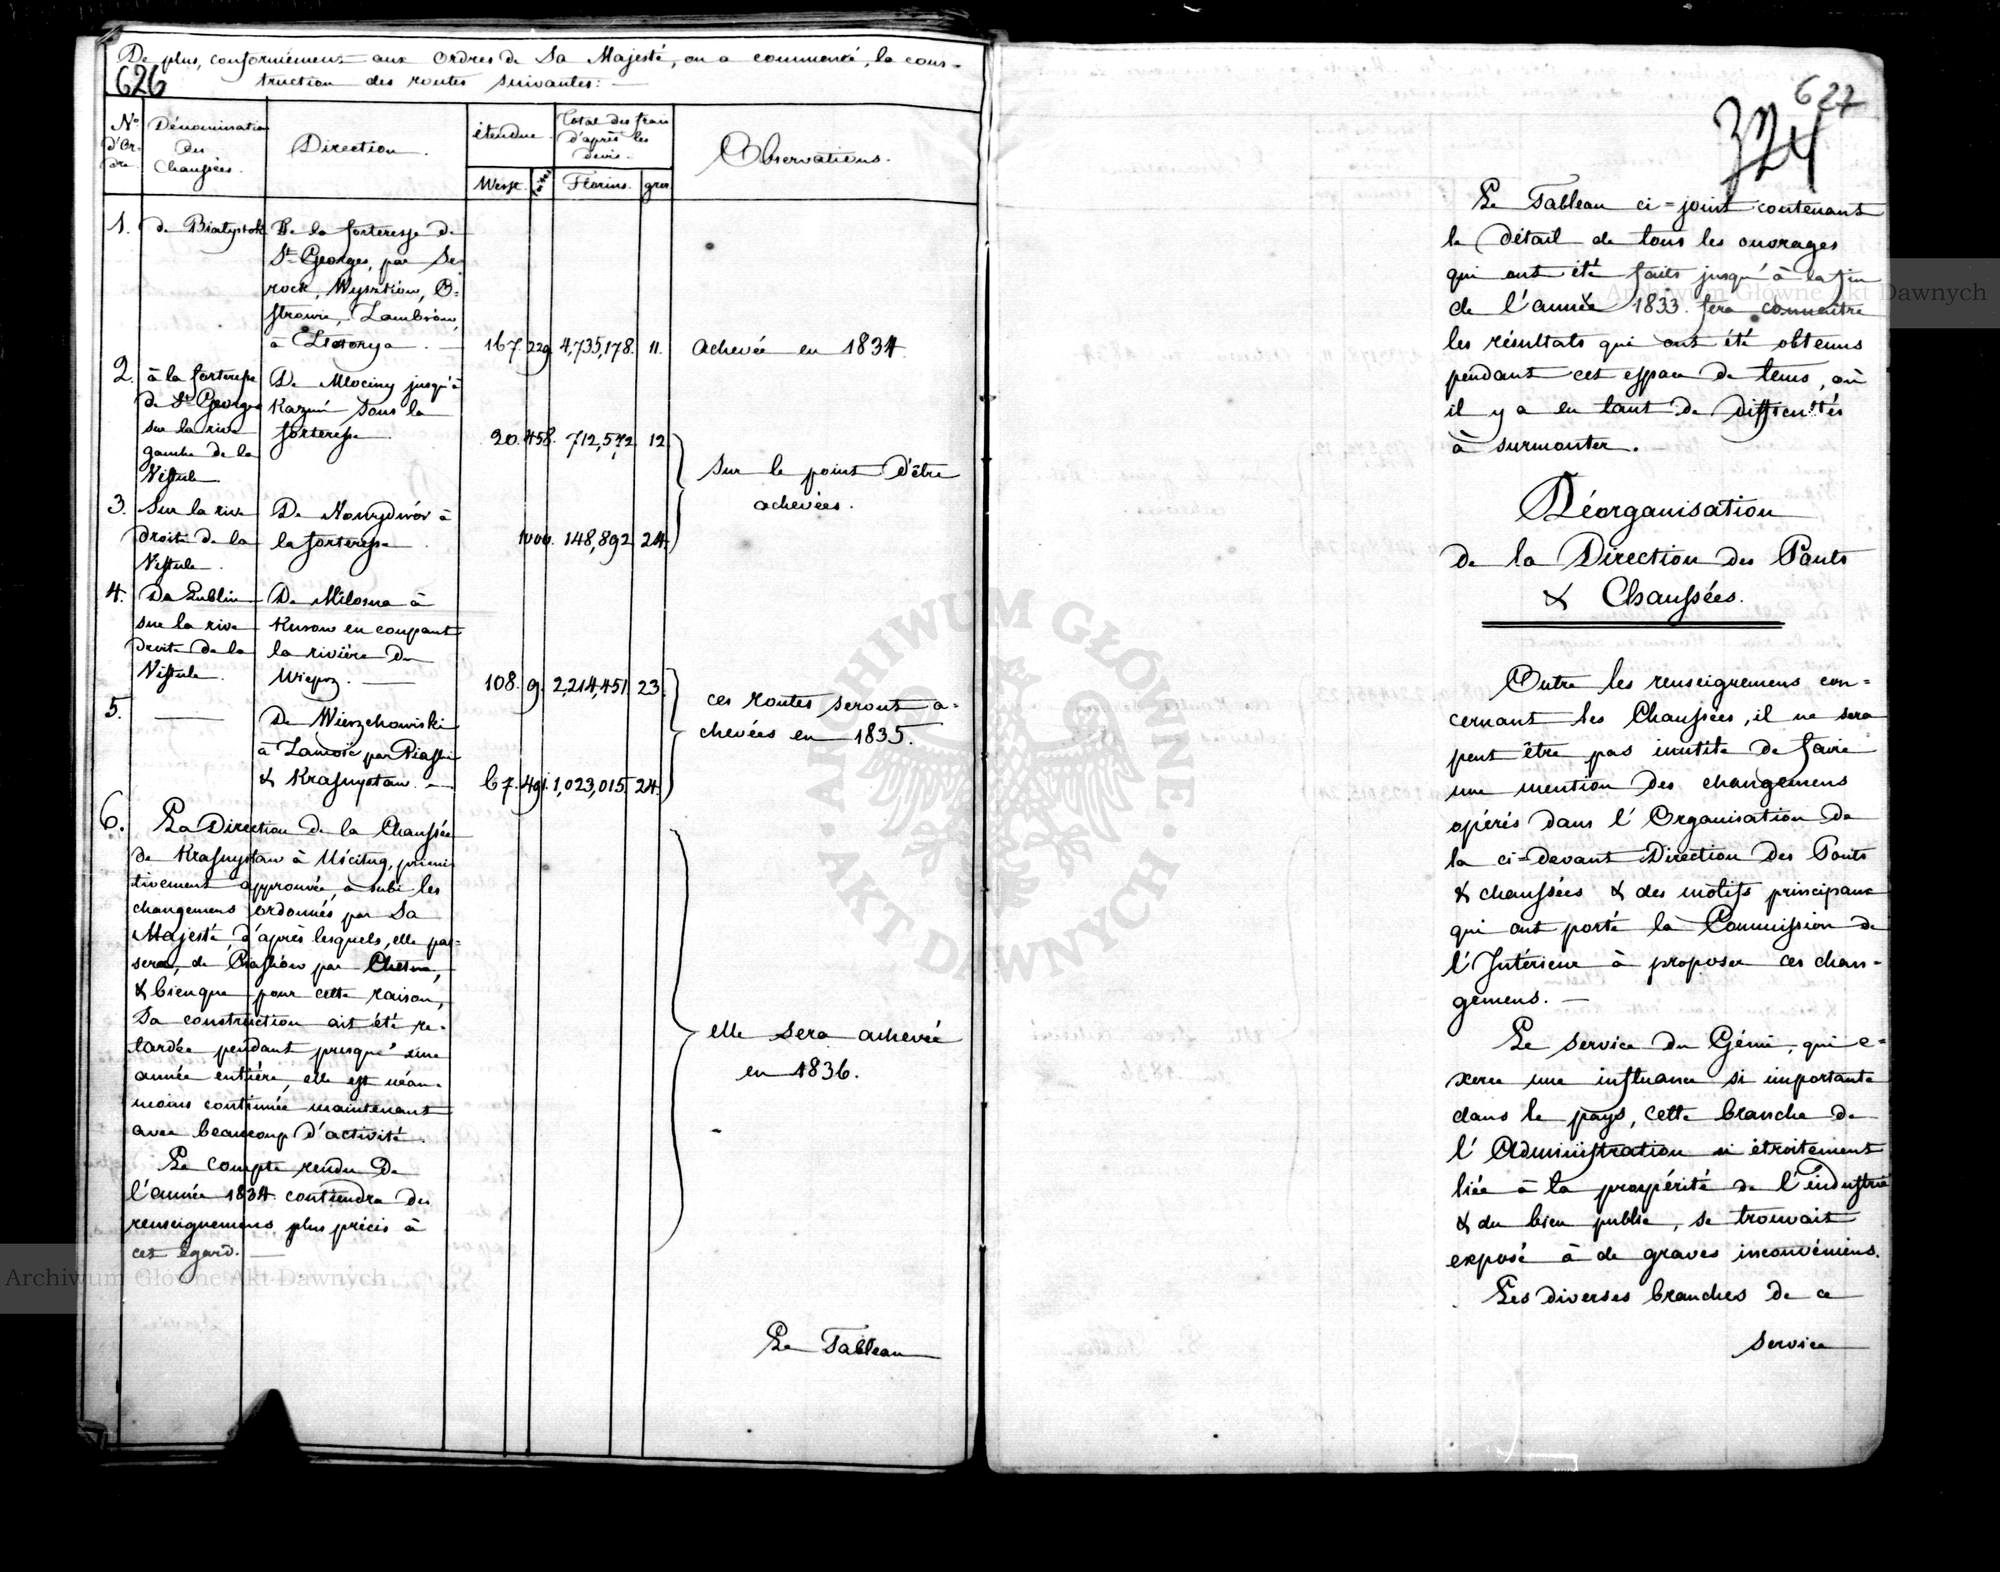 De plus, conformément aux Ordres de Sa Majesté, on a commencé, la cons-
626
truction des routes suivantes: —
No d'Or-dre.
Dénomination des Chaussées.
Direction.
étendue
Total des frais d'après les devis.
Observations.
Werst.
Florins.
gros
1. de Białystok
De la forteresse de
St Georges, par Se-
rock, Wyszków, O-
strowie, Zambrów,
à Złotorya. —
167. 229. 4,735,178. 11.
Achevée en 1834.
2. à la forteresse
de St Georges
sur la rive
gauche de la
Vistule.
De Młociny jusqu'à
Kazuń sous la
forteresse.
20. 458. 712,572. 12.
Sur le point d'être
achevées.
3. Sur la rive
droite de la
Vistule.
De Nowydwór à
la forteresse.
1000. 148,892. 24.
4. De Lublin
sur la rive
droite de la
Vistule.
De Miłosna à
Kurow en coupant
la rivière du
Wieprz. —
108. 9. 2,214,451. 23.
ces routes seront a-
chevées en 1835.
5. —
De Wierzchowiski
à Zamość par Piaski
& Krasnystaw. —
67. 491. 1,023,015. 24.
6. La Direction de la Chaussée
de Krasnystaw à Uściług, primi-
tivement approuvée, a subi les
changemens ordonnés par Sa
Majesté, d'après lesquels, elle pas-
sera, de par Chełm,
& bienque pour cette raison,
Sa construction ait été re-
tardée pendant presqu' une
année entière, elle est néan-
moins continuée maintenant
avec beaucoup d'activité.
elle sera achevée
en 1836.
Le compte rendu de
l'année 1834. contiendra des
renseignemens plus précis à
cet égard. —
Le Tableau
627
324
Le Tableau ci-joint contenant
le détail de tous les ouvrages
qui ont été faits jusqu'à la fin
de l'année 1833. fera connaître
les résultats qui ont été obtenus
pendant cet espace de tems, où
il y a eu tant de difficultés
à surmonter.
Réorganisation
de la Direction des Ponts
& Chaussées.
Outre les renseignemens con-
cernant les Chaussées, il ne sera
peut être pas inutile de faire
une mention des changemens
opérés dans l'Organisation de
la ci-devant Direction des Ponts
& chaussées & des motifs principaux
qui ont porté la Commission de
l'Intérieur à proposer ces chan-
gemens. —
Le service du Génie, qui e-
xerce une influence si importante
dans le pays, cette branche de
l'Administration si étroitement
liée à la prospérité de l'industrie
& du bien public, se trouvait
exposé à de graves inconvéniens.
Les diverses branches de ce
service
Archiwum Główne Akt Dawnych
Archiwum Główne Akt Dawnych
ARCHIWUM GŁÓWNE · AKT DAWNYCH ·